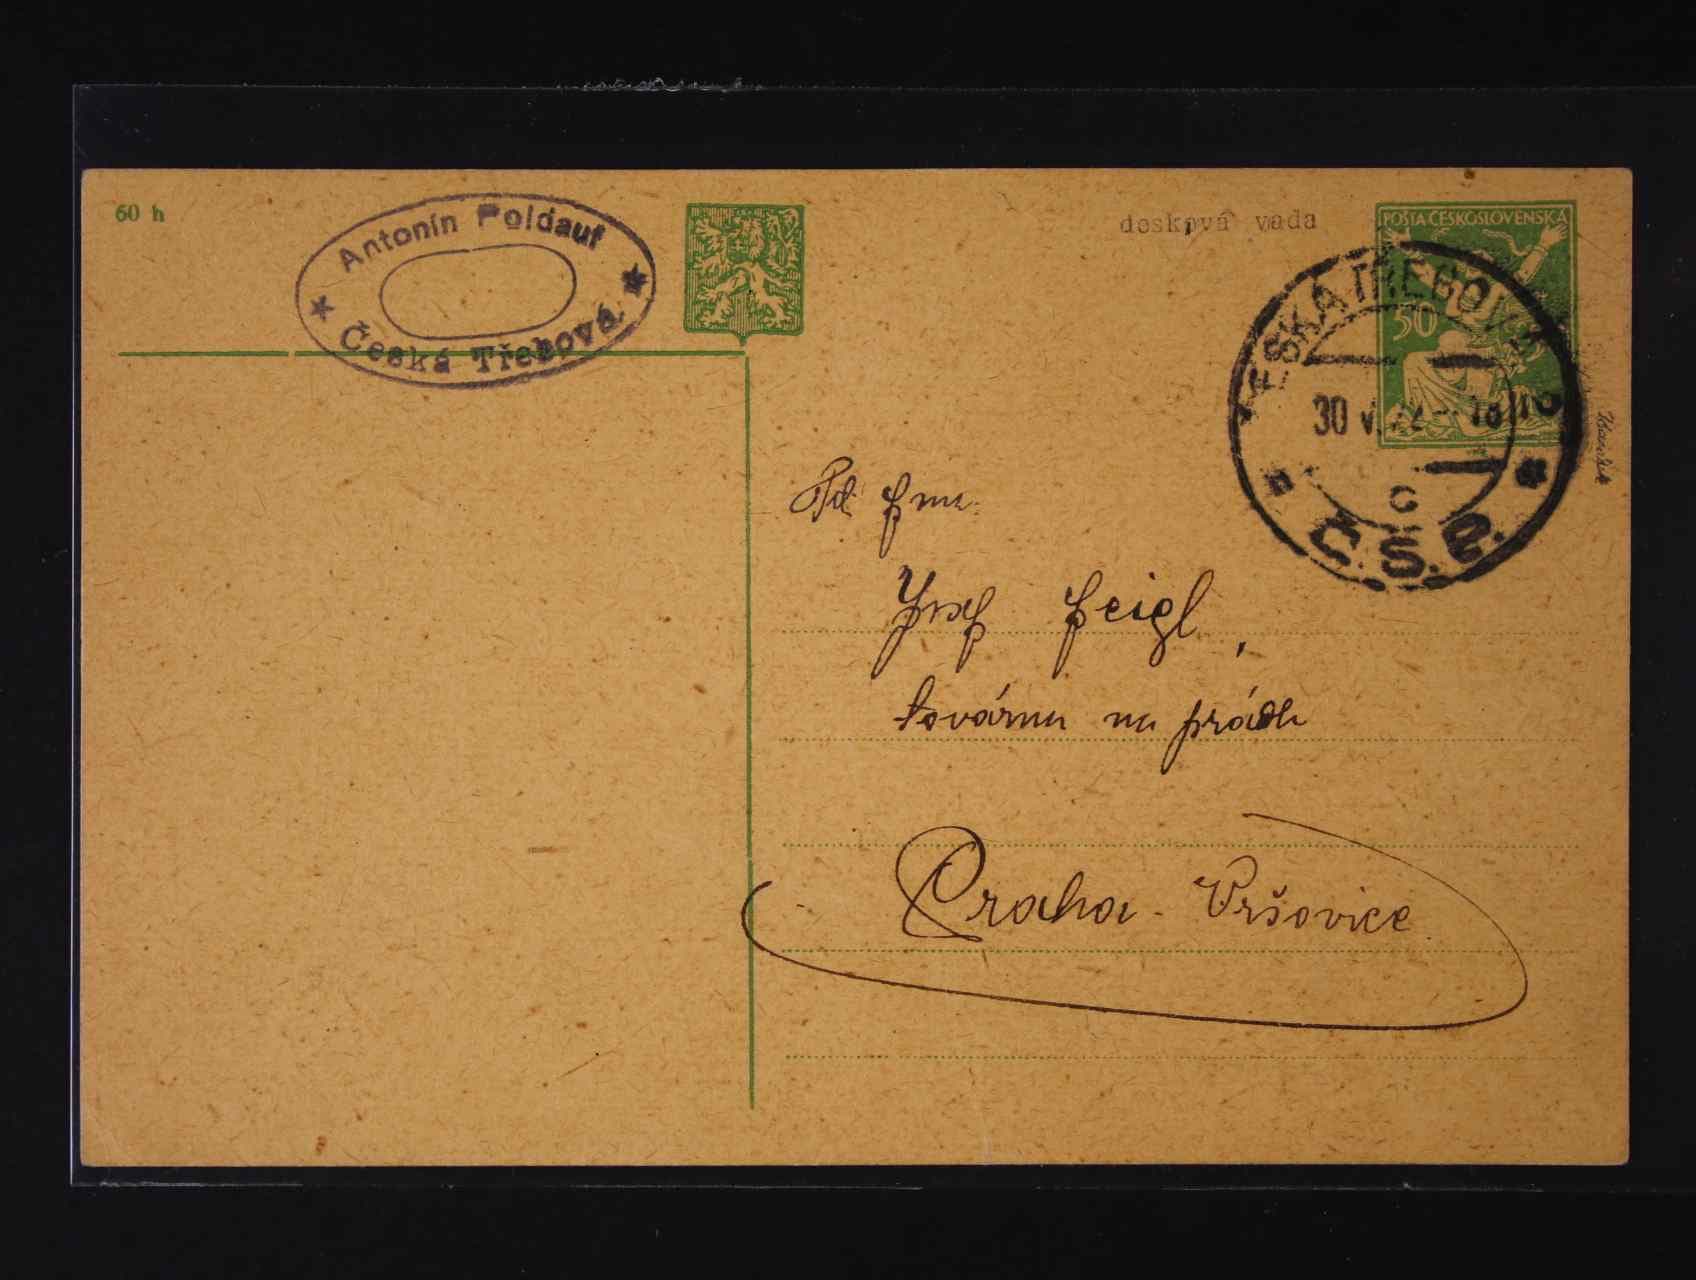 60 h
Antonín Poldauf
Česká Třebová
desková vada
POŠTA ČESKOSLOVENSKÁ
50
ČESKÁ TŘEBOVÁ 2
30 V. 22 - 18
c
Č.S.P.
Josef Feigl,
továrna na prádlo
Praha - Vršovice